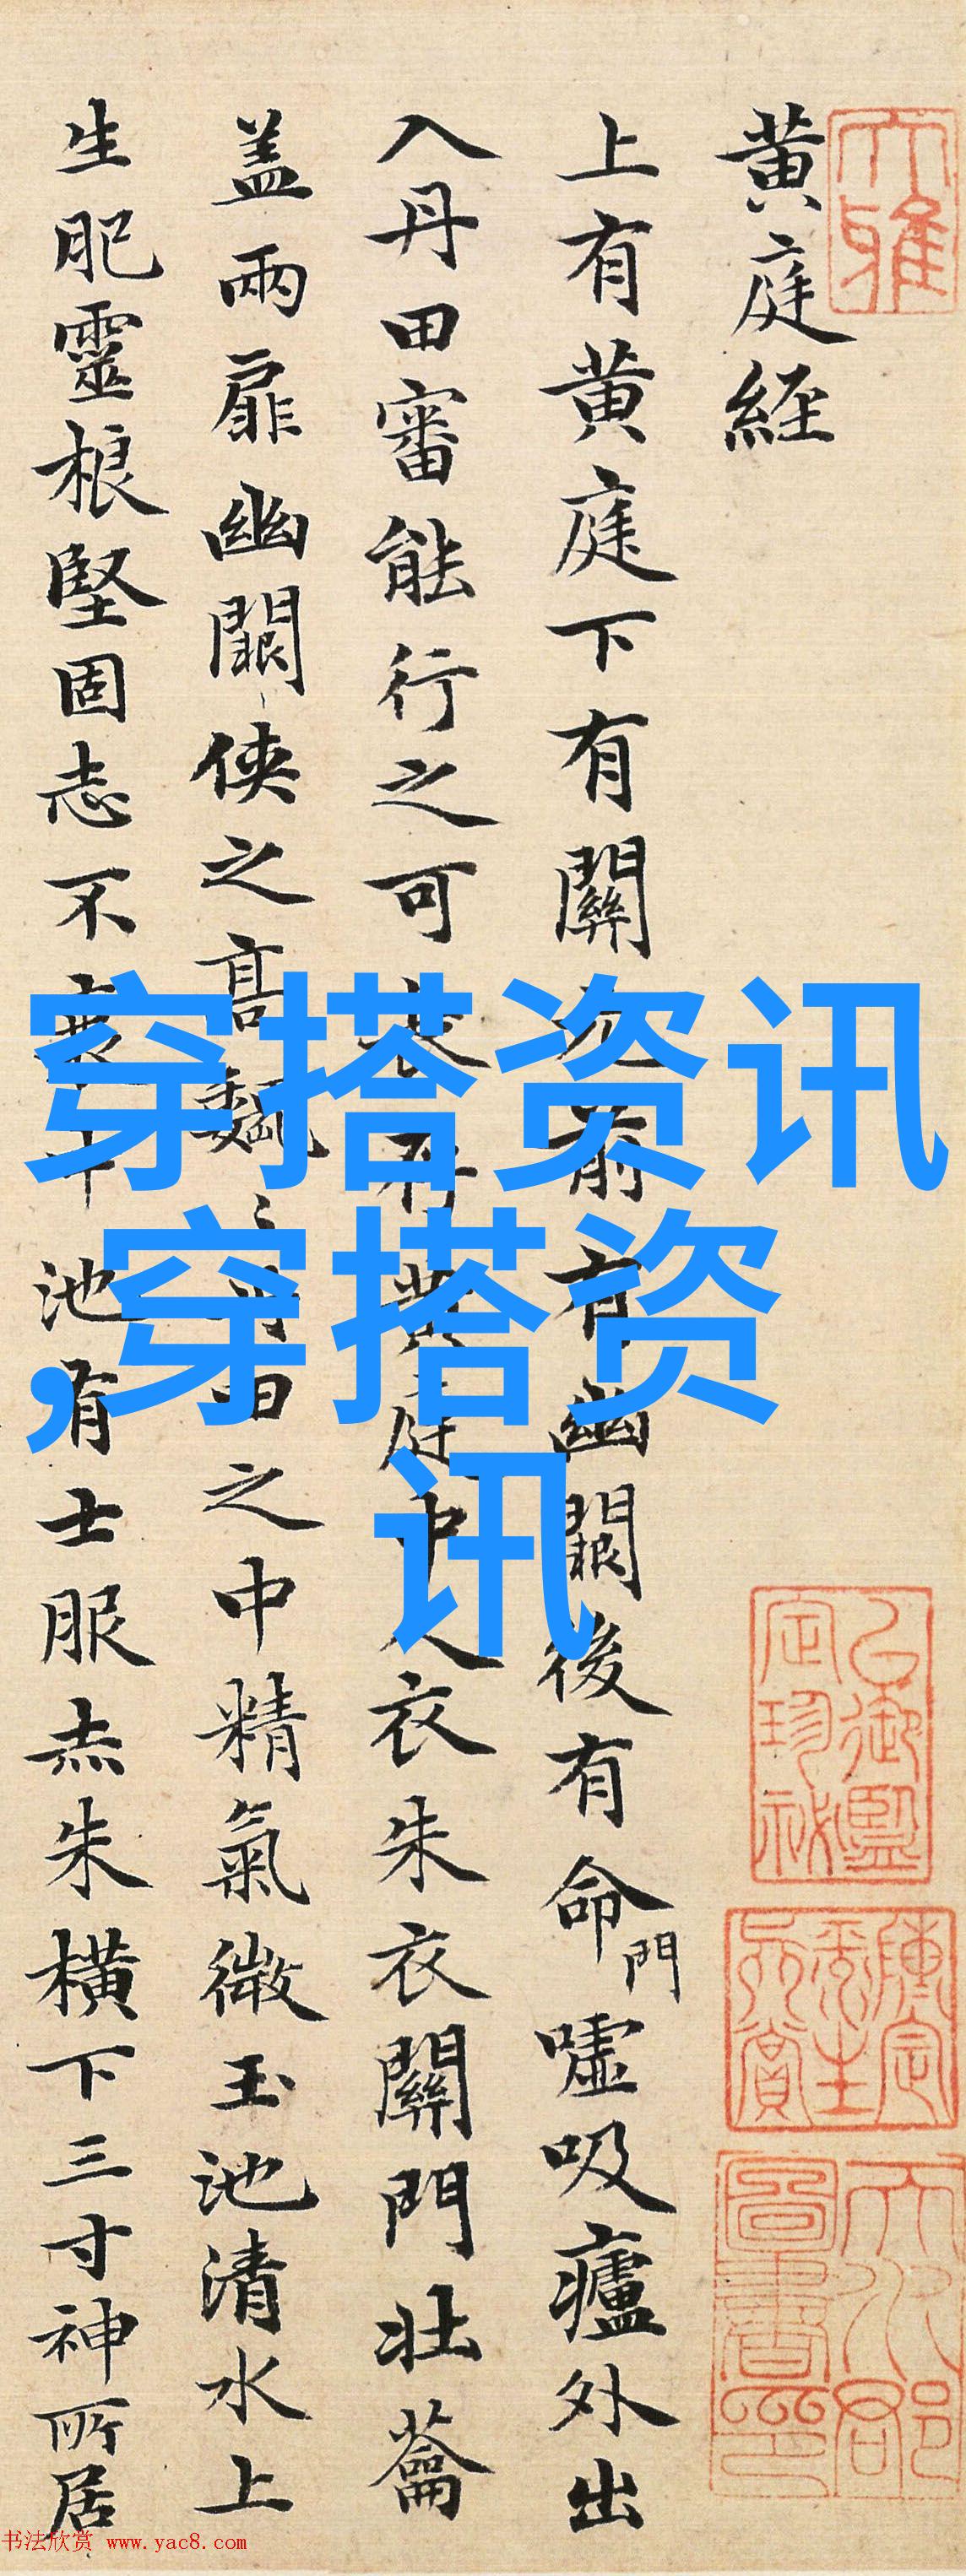 大雅
黄庭經
上有黄庭下有關元前有幽闕後有命門嘘吸廬外出
入丹田審能行之可長存黄庭中人衣朱衣關門壯蘥
盖兩扉幽闕俠之高巍〻丹田之中精氣微玉池清水上
生肥靈根堅固志不衰中池有士服赤朱横下三寸神所居
穿搭资讯
,穿搭资
讯
书法欣赏 www.yac8.com